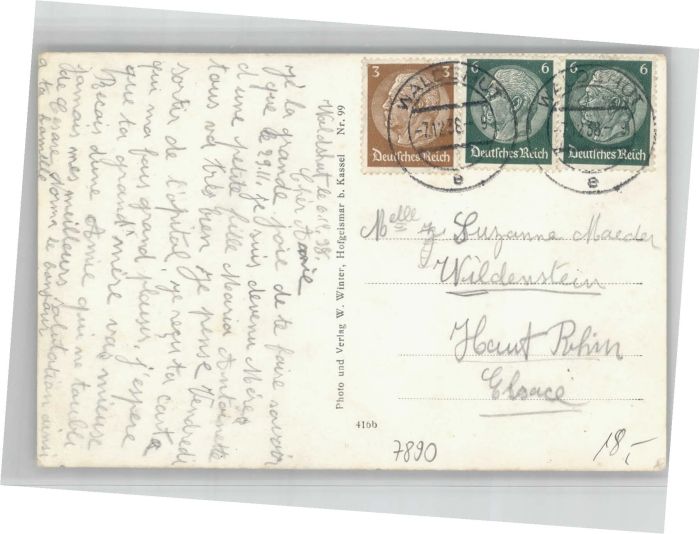 Waldshut le 6.12.38.
Cher Amie
J'ai la grande joie de te faire savoir
que le 29.11. je suis devenu Mère
d'une petite fille Maria Antoinette
tous va très bien je pense Vendredi
sortir de l'opital, je reçu ta carte
qui ma fais grand plaisir. j'espère
que ta grand'mère vas mieuse
Recais d'une Amie qui ne t'oublie
jamais mes meilleurs salutation ainsi
de Cesare Norma le bonjour
a ta famille
Photo und Verlag W. Winter, Hofgeismar b. Kassel Nr. 99
3 3
Deutsches Reich
6 6
Deutsches Reich
6 6
Deutsches Reich
WALDSHUT
-7.12.38
e
WALDSHUT
e
Melle Suzanne Maeder
Wildenstein
Haut Rhin
Elsace
416b
7890
18,-